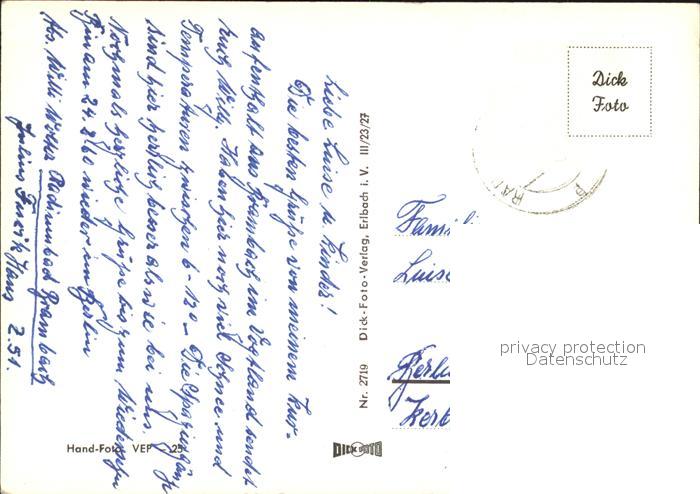 Liebe Luise u. Kinder!
Die besten Grüße von meinem Kur-
aufenthalt aus Brambach im Vogtland sendet
Euch Willi. Haben hier noch viel Schnee und
Temperaturen zwischen 6 - 12° - Die Spaziergänge
sind hier herrlich besser als wie bei uns.
Nochmals herzliche Grüße bis zum Wiedersehn
Bin am 24.2.60 wieder in Berlin
Abs. Willi Radiumbad Brambach
Julius Fucik Haus Z. 51.
Hand-Foto VEP -.25
Nr. 2719 Dick-Foto-Verlag, Erlbach i. V. III/23/27
DICK FOTO
Dick
Foto
BRA
Famili
Luise
Berlin
privacy protection
Datenschutz